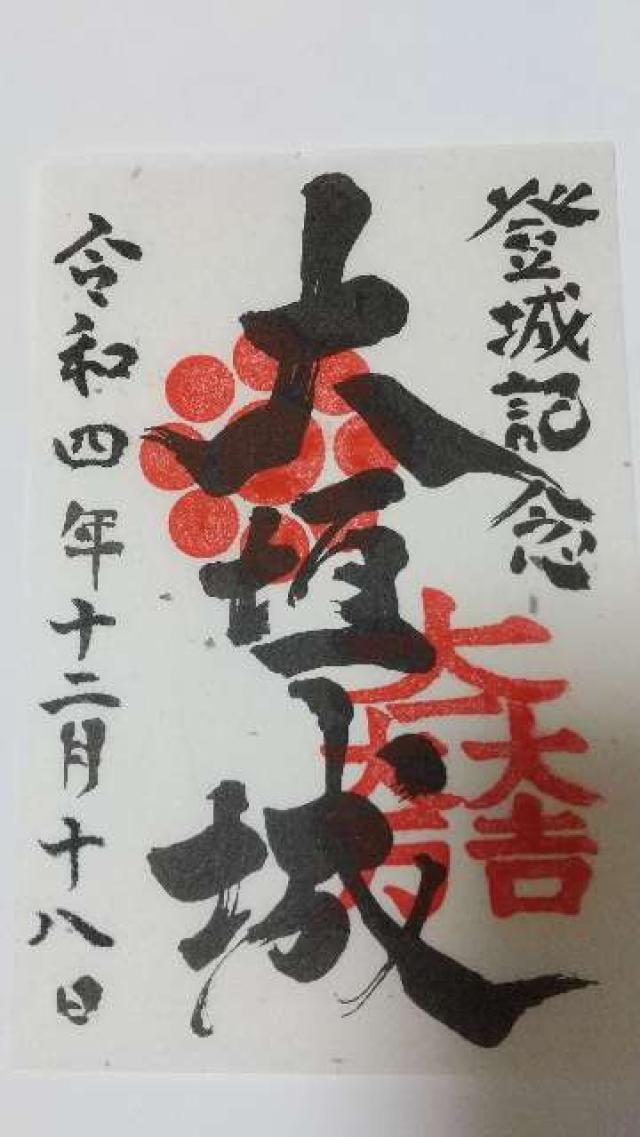 登城記念
大垣城
大一大万大吉
令和四年十二月十八日